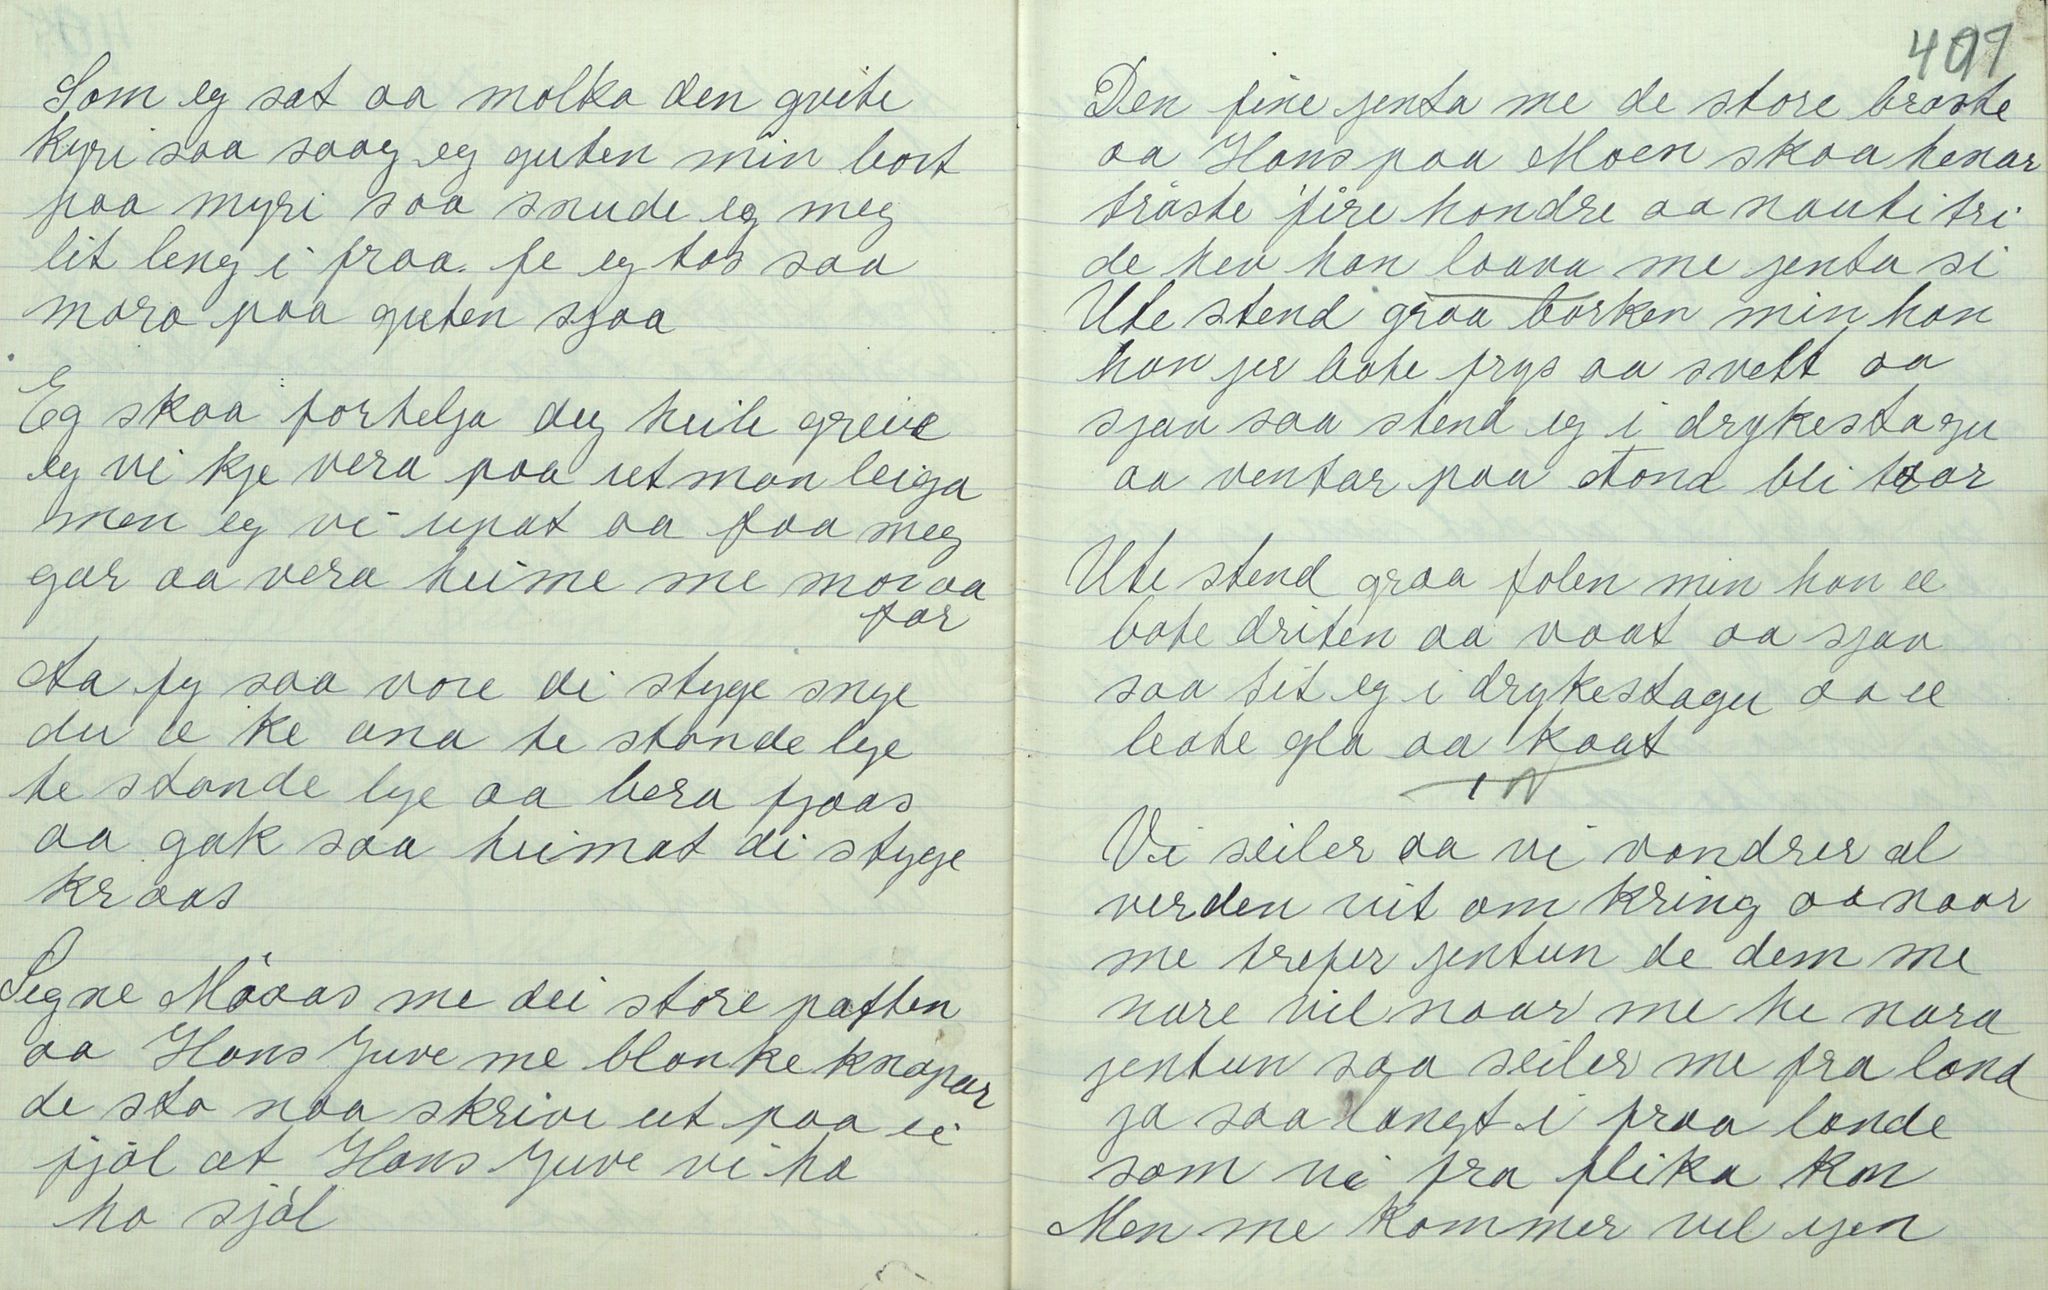 Som eg sat aa molka den qvite
kyri saa saag eg guten min bort
paa myri saa snude eg meg
lit leng i fraa. fe eg tos saa
mora paa guten sjaa
Eg skaa fortelja deg heile greive
eg vi kje vera paa utman leiga
men eg vi upat aa faa meg
gar aa vera heime me mor aa
far
Aa fy saa vore di styge snye
du æ ke ana te stande lye
te stande lye aa bera fjaas
aa gak saa heimat di stygge
kraas
Segne Möaas me dei store patten
aa Hans Juve me blanke knapar
de sta naa skrive ut paa ei
fjöl at Hans Juve vi ha
ho sjöl
497
Den fine jenta me de store braste
aa Hans paa Moen skaa henar
tråste fire hondre aa nauti tri
de hev han laava me jenta si
Ute stend graa borken min han
han jer bate frys aa svelt aa
sjav saa stend eg i drykestagu
aa ventar paa stond bli tvar
Ute stend graa folen min han æ
bate driten aa vaat aa sjav
saa sit eg i drykestagu aa æ
leate gla aa kaat
Vi seiler aa vi vandrer al
verden uit om kring aa naar
me trefer jentun de dem me
nare vil naar me he nara
jentun saa seiler me fra land
ja saa langt i fraa lande
som vi fra flika kan
Men me kommer vel igen